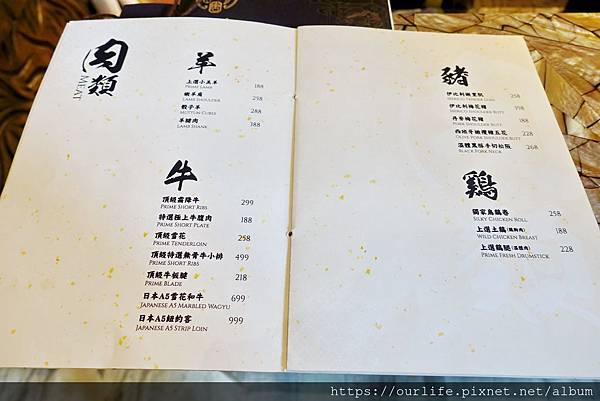 肉類
MEAT
羊
上選小羔羊
PRIME LAMB
188
嫩羊肩
LAMB SHOULDER
258
骰子羊
MUTTUN CUBES
288
羊腱肉
LAMB SHANK
188
牛
頂級霜降牛
PRIME SHORT RIBS
299
特選極上牛腹肉
PRIME SHORT PLATE
188
頂級雪花
PRIME TENDERLOIN
258
頂級特選無骨牛小排
PRIME SHORT RIBS
499
頂級牛板腱
PRIME BLADE
218
日本A5雪花和牛
JAPANESE A5 MARBLED WAGYU
699
日本A5紐約客
JAPANESE A5 STRIP LOIN
999
豬
伊比利嫩里肌
IBERICO TENDER LOIN
258
伊比利梅花豬
IBERICO SHOULDER BUTT
358
丹麥梅花豬
PORK SHOULDER BUTT
188
西班牙橄欖豬五花
OLIVE PORK SHOULDER BUTT
228
溫體黑豚手切松阪
BLACK PORK NECK
268
鷄
獨家烏鷄卷
SILKY CHICKEN ROLL
258
上選土鷄(鷄胸肉)
WILD CHICKEN BREAST
188
上選鷄腿(溫體肉)
PRIME FRESH DRUMSTICK
228
https://ourlife.pixnet.net/album